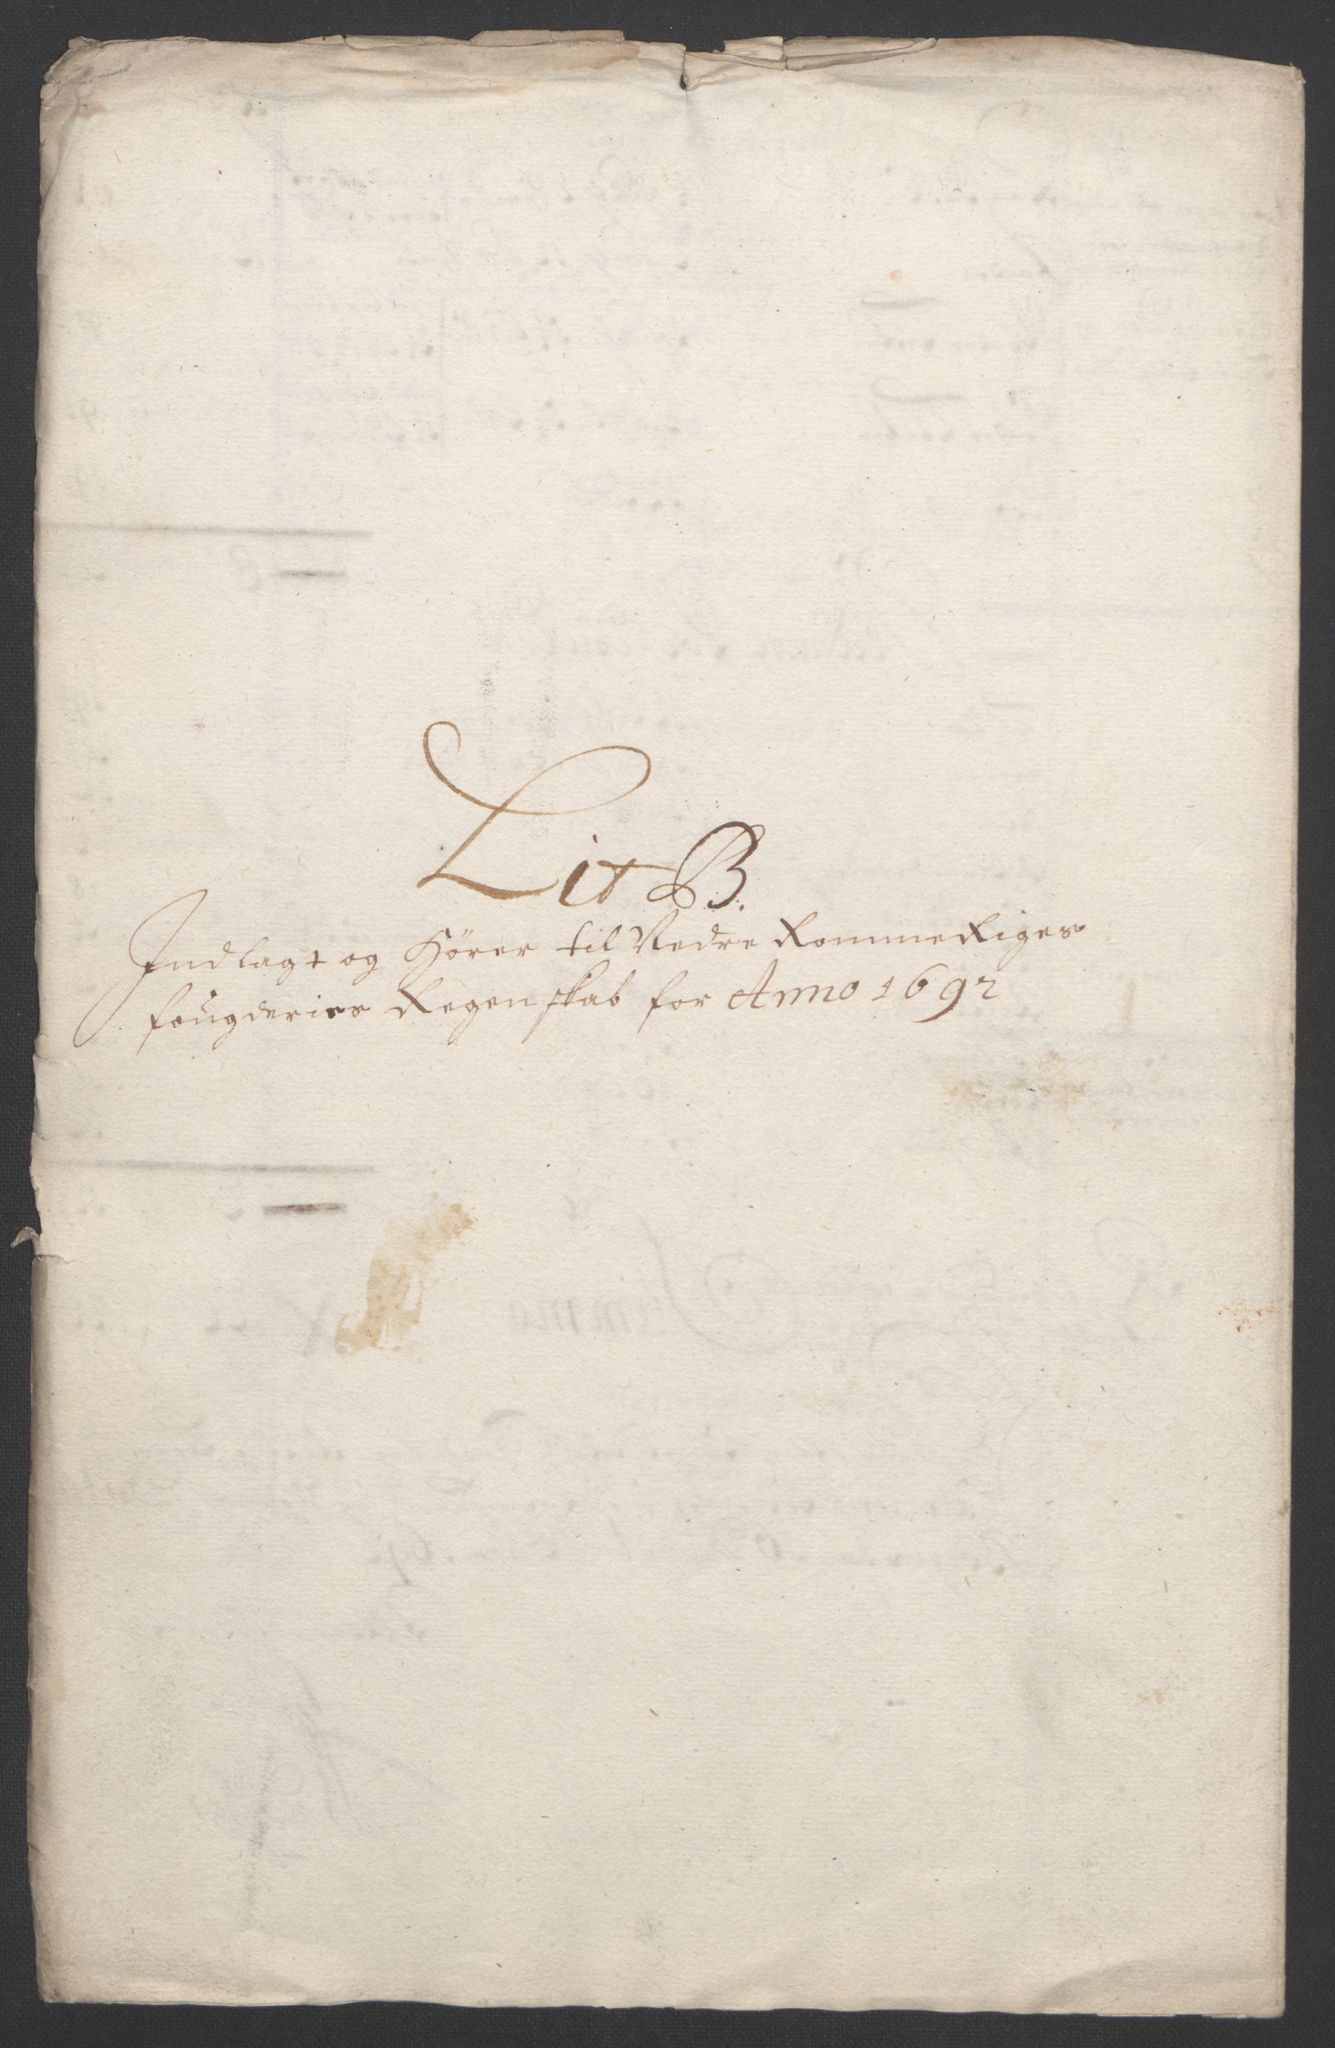 Lit B.
Indlagt og Hører til Nedre Rommeriges
fougderies Regenskab for Anno 1692